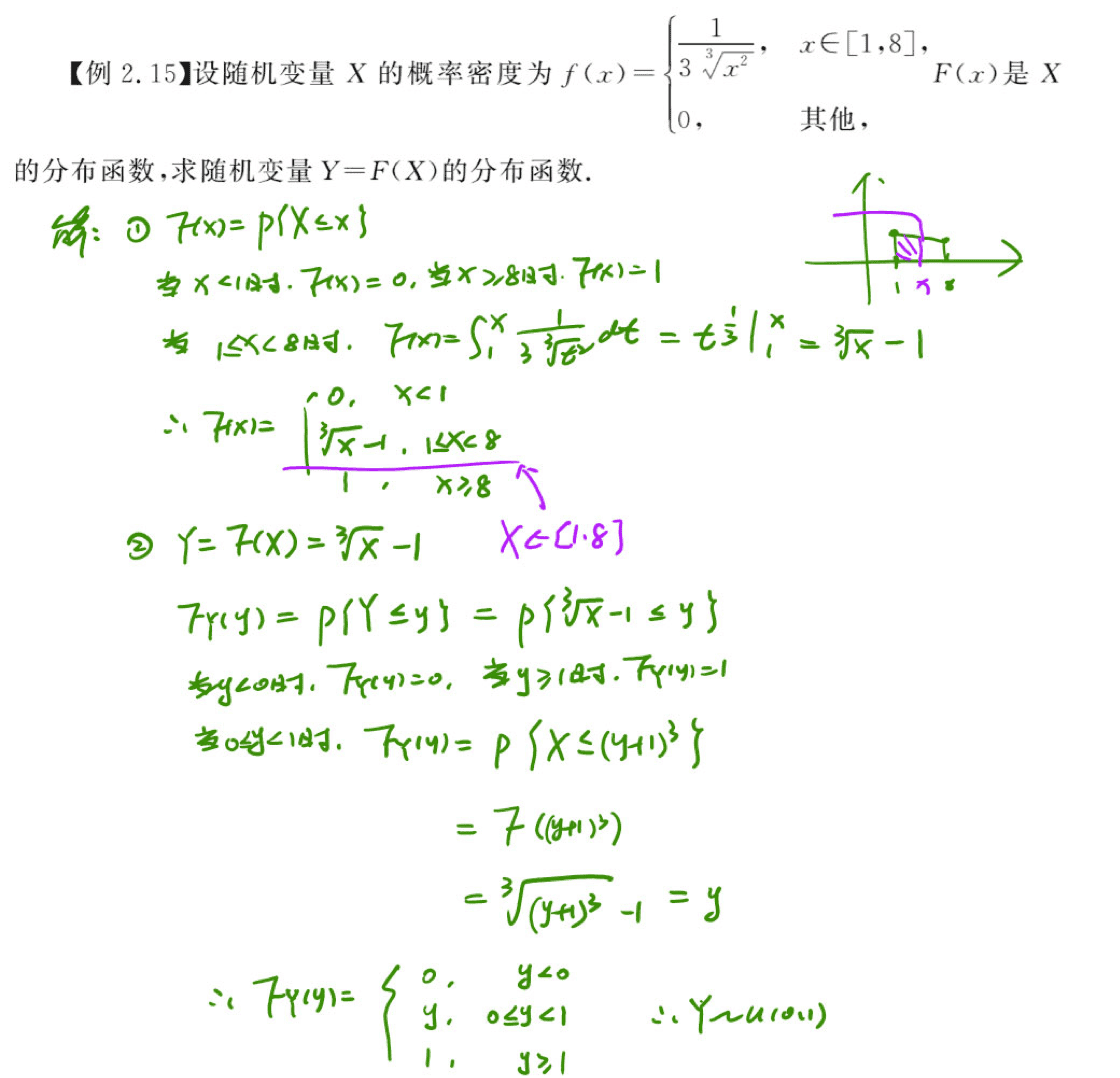 【例 2.15】设随机变量 X 的概率密度为 f(x)={ 1/(3∛x²), x∈[1,8], 0, 其他, F(x)是 X
的分布函数,求随机变量 Y=F(X)的分布函数.
解: ① F(x)= P{X≤x}
当 x<1时. F(x)=0, 当x≥8时. F(x)=1
1 x 8
当 1≤x<8时. F(x)=∫₁ˣ 1/(3∛t²) dt = t^(1/3)|₁ˣ = ∛x - 1
∴ F(x)= { 0, x<1
∛x-1, 1≤x<8
1, x≥8
② Y= F(X)= ∛X -1 X∈[1.8]
F_Y(y)= P{Y≤y} = P{∛X-1 ≤ y}
当y<0时. F_Y(y)=0, 当y≥1时. F_Y(y)=1
当0≤y<1时. F_Y(y)= P{X≤(y+1)³}
= F((y+1)³)
= ∛(y+1)³ -1 = y
∴ F_Y(y)= { 0, y<0
y, 0≤y<1 ∴ Y~U(0,1)
1, y≥1